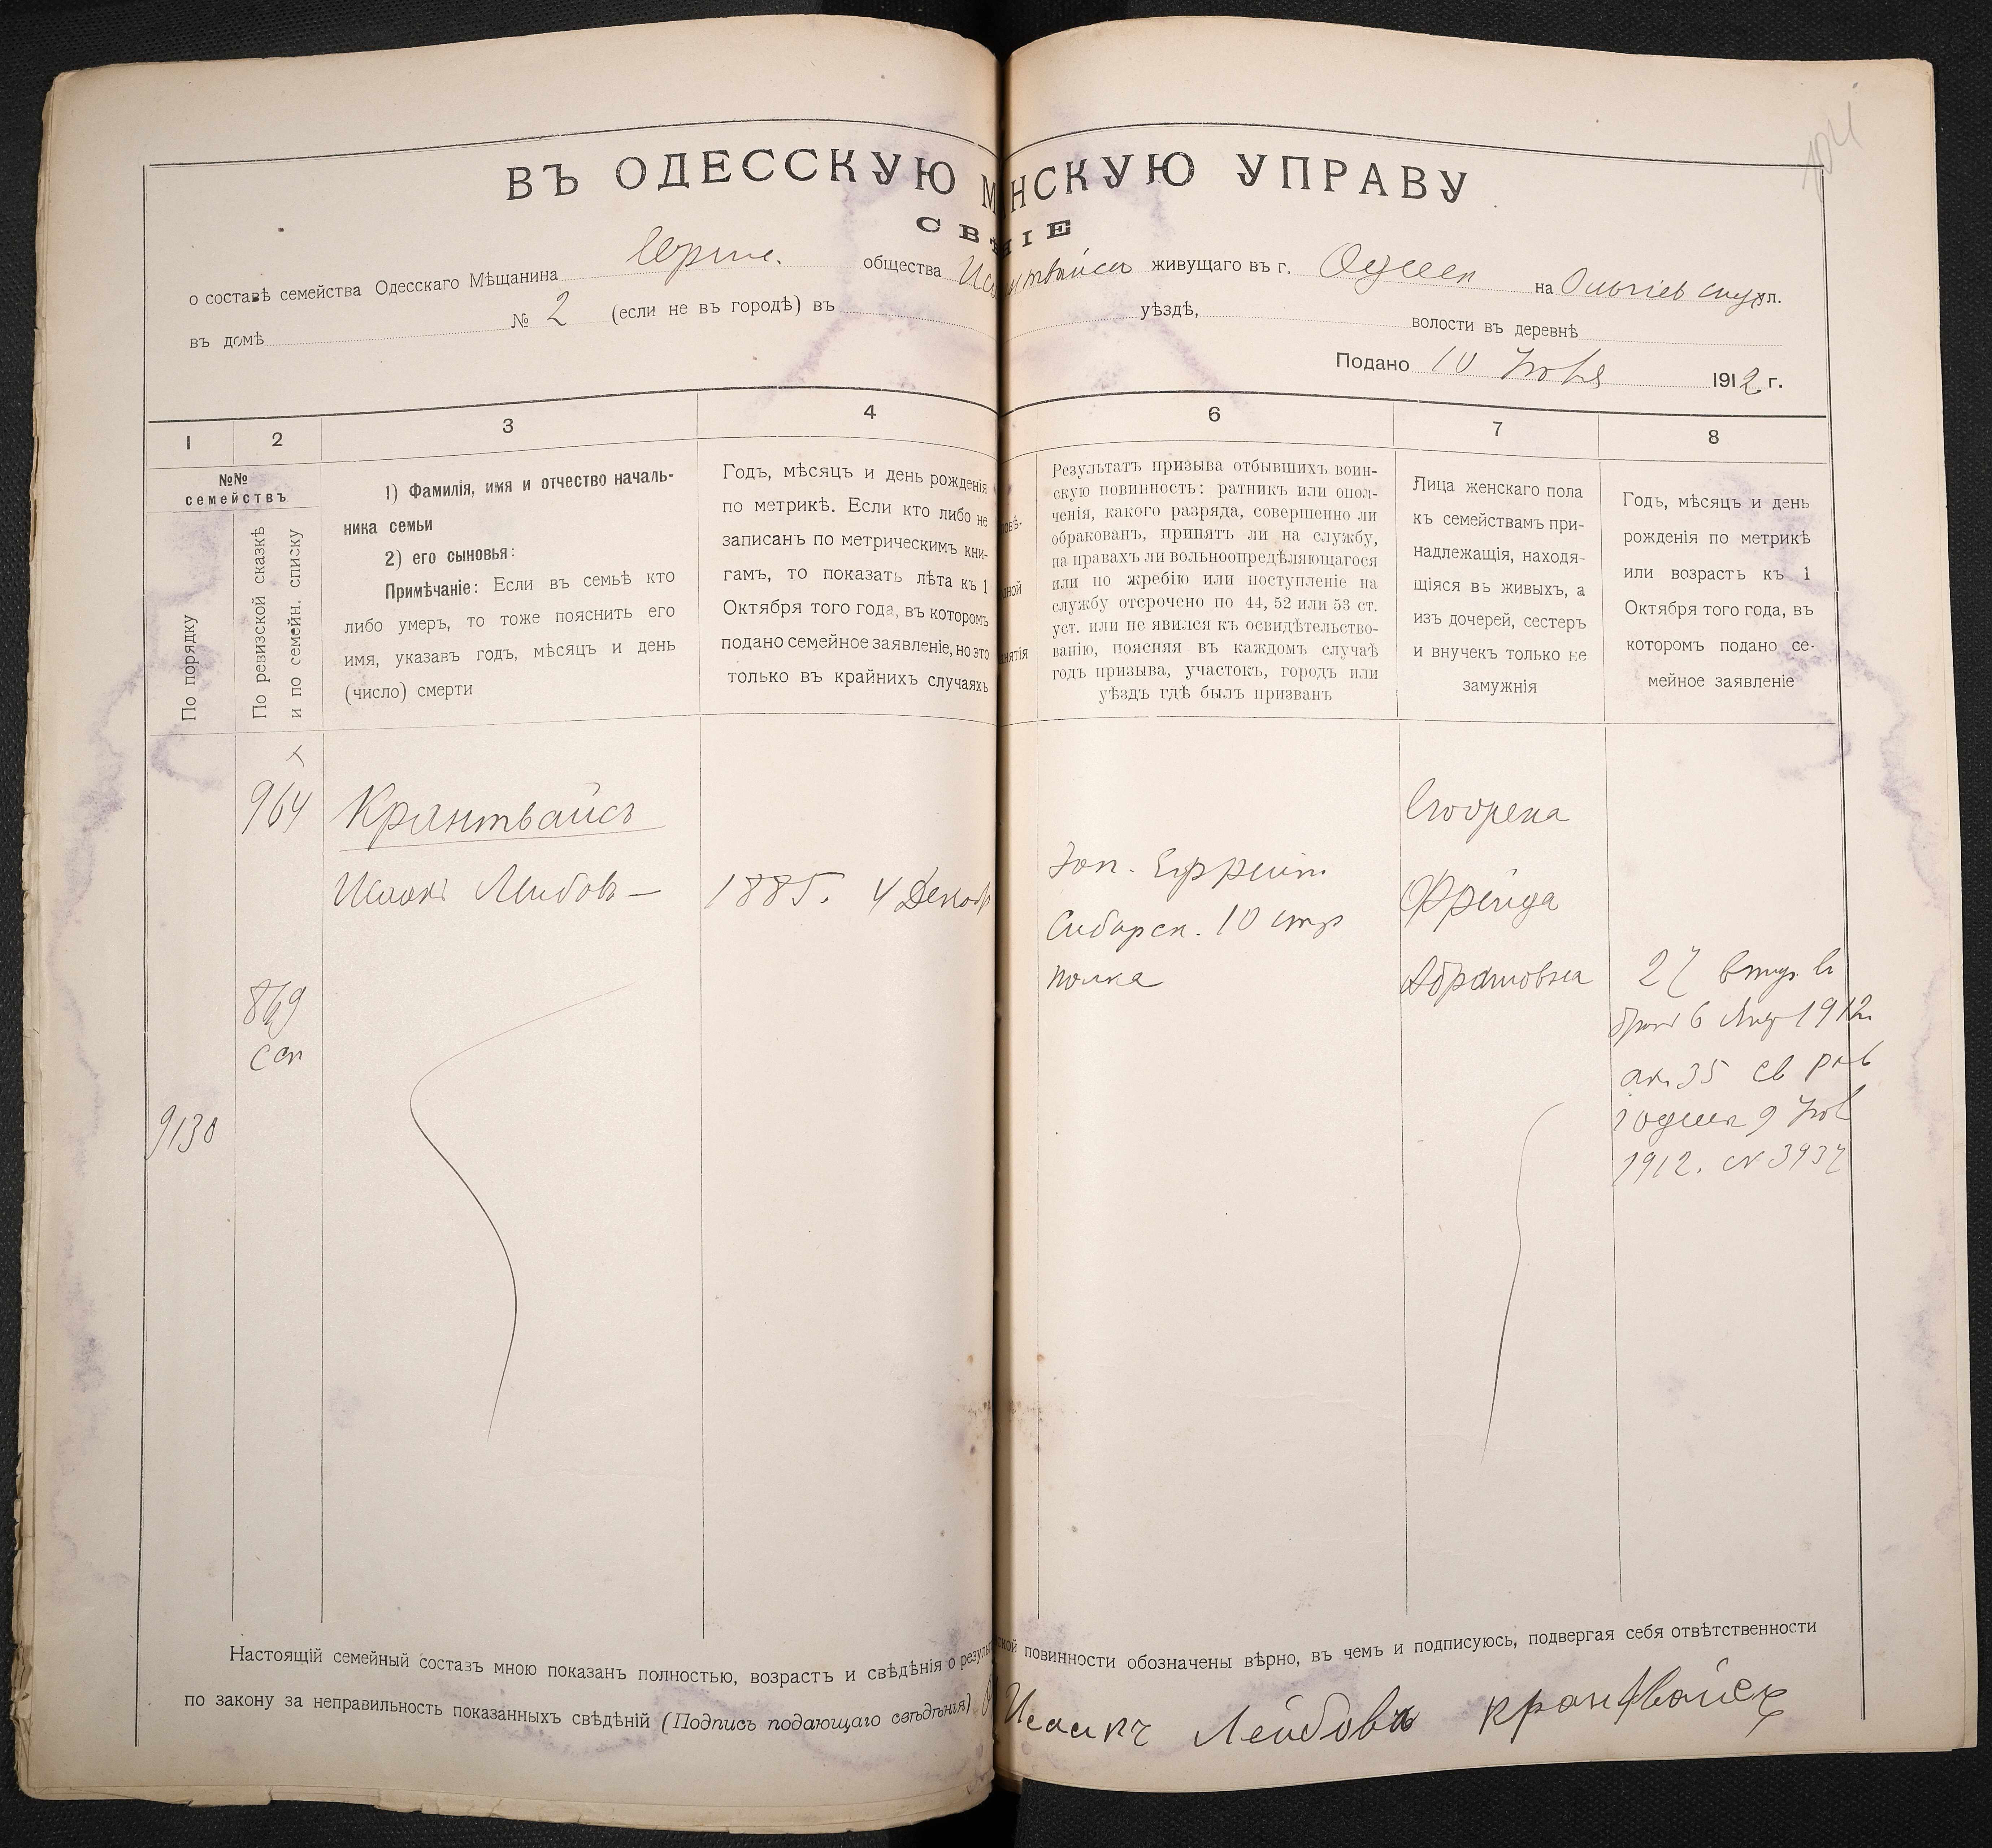 ВЪ ОДЕССКУЮ М НСКУЮ УПРАВУ
СВѢ НІЕ
о составѣ семейства Одесскаго Мѣщанина Еврейс. общества живущаго въ г. Одессѣ на ул.
въ домѣ № 2 (если не въ городѣ) въ уѣздѣ, волости въ деревнѣ
Подано 10 1912 г.
1 2 3 4 6 7 8
№№ семействъ
По порядку
По ревизской сказкѣ
и по семейн. списку
1) Фамилія, имя и отчество началь-
ника семьи
2) его сыновья:
Примѣчаніе: Если въ семьѣ кто
либо умеръ, то тоже пояснить его
имя, указавъ годъ, мѣсяцъ и день
(число) смерти
Годъ, мѣсяцъ и день рожденія
по метрикѣ. Если кто либо не
записанъ по метрическимъ кни-
гамъ, то показать лѣта къ 1
Октября того года, въ которомъ
подано семейное заявленіе, но это
только въ крайнихъ случаяхъ
Результатъ призыва отбывшихъ воин-
скую повинность: ратникъ или опол-
ченія, какого разряда, совершенно ли
обракованъ, принятъ ли на службу,
на правахъ ли вольноопредѣляющагося
или по жребію или поступленіе на
службу отсрочено по 44, 52 или 53 ст.
уст. или не явился къ освидѣтельство-
ванію, поясняя въ каждомъ случаѣ
годъ призыва, участокъ, городъ или
уѣздъ гдѣ былъ призванъ
Лица женскаго пола
къ семействамъ при-
надлежащія, находя-
щіяся въ живыхъ, а
изъ дочерей, сестеръ
и внучекъ только не
замужнія
Годъ, мѣсяцъ и день
рожденія по метрикѣ
или возрастъ къ 1
Октября того года, въ
которомъ подано се-
мейное заявленіе
964 Крантвайсъ
Исаакъ Лейбовъ — 1885. 4 Декабр
Зап. Ефрейт.
Сибирск. 10 стр
полка
Фрейда
Абрамовна
27 вступ. въ
бракъ 6 Янв 1912
ак. 35 св рав
1912. № 3937
869
9130
Настоящій семейный составъ мною показанъ полностью, возрастъ и свѣдѣнія о резуль ской повинности обозначены вѣрно, въ чемъ и подписуюсь, подвергая себя отвѣтственности
по закону за неправильность показанныхъ свѣдѣній (Подпись подающаго свѣдѣнія) Исаакъ Лейбовъ Крантвайсъ